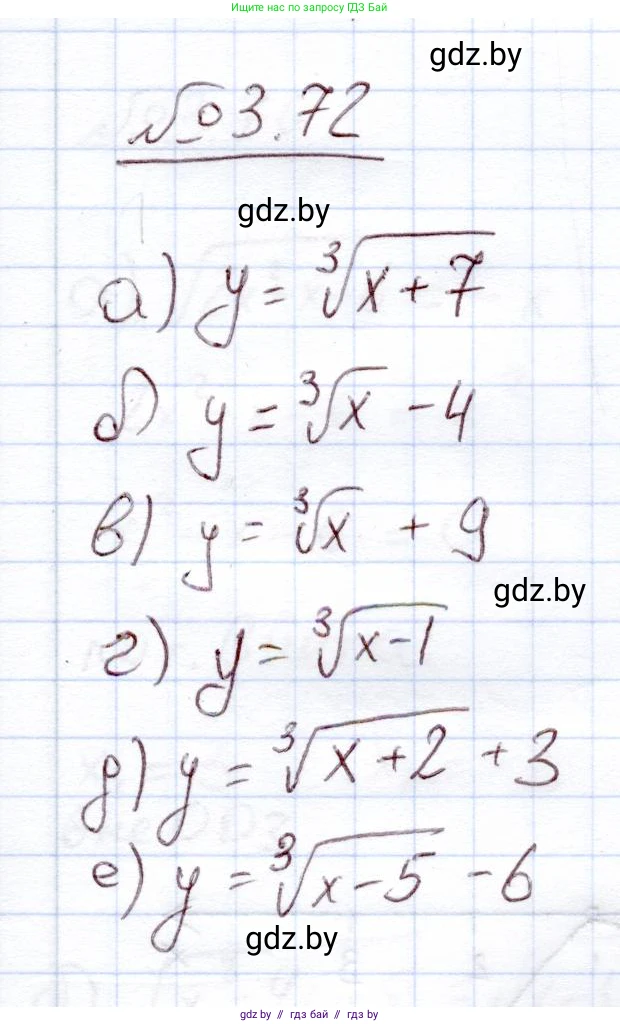 Ищите нас по запросу ГДЗ Бай
gdz.by
№3.72
gdz.by
а) y = ∛(x+7)
б) y = ∛x - 4
в) y = ∛x + 9
gdz.by
г) y = ∛(x-1)
д) y = ∛(x+2) + 3
е) y = ∛(x-5) - 6
gdz.by
gdz by // гдз бай // gdz by